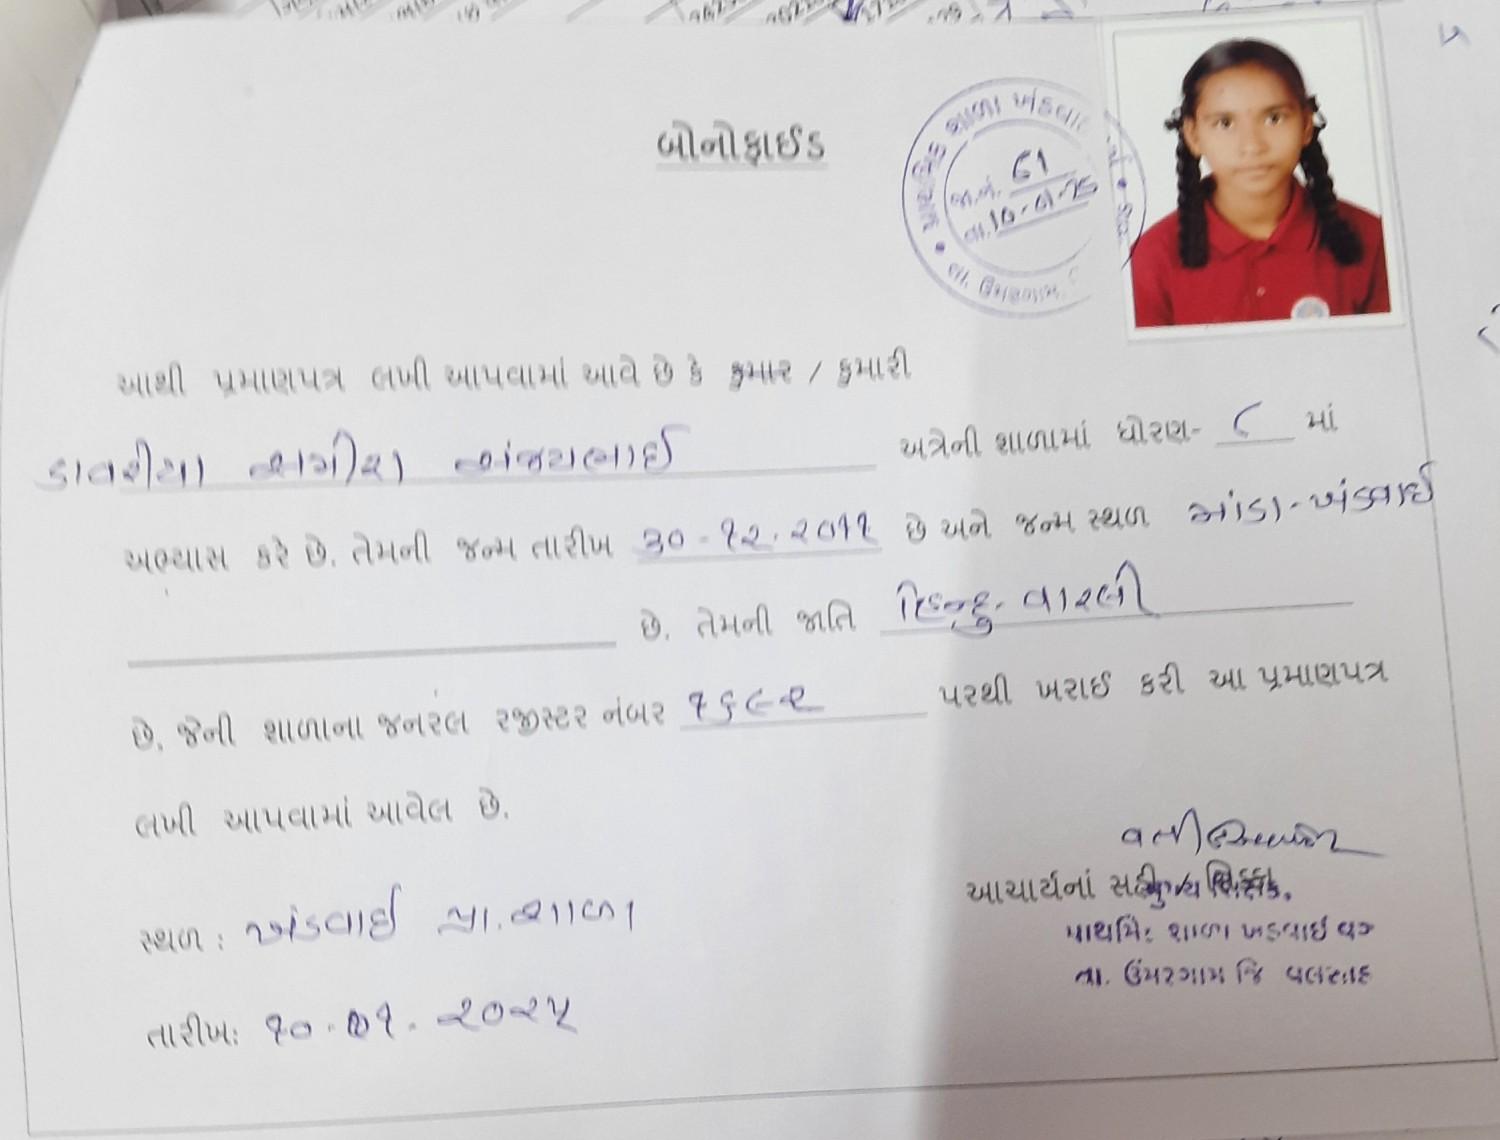 બોનોફાઈડ
શાળા ખંડવા
જા.નં. 61
તા. 10-01-25
તા. ઉમરગામ
આથી પ્રમાણપત્ર લખી આપવામાં આવે છે કે કુમાર / કુમારી
સંજયભાઈ અત્રેની શાળામાં ધોરણ- ૮ માં
અભ્યાસ કરે છે. તેમની જન્મ તારીખ ૩૦-૧૨-૨૦૧૧ છે અને જન્મ સ્થળ ખંડવાઈ
છે. તેમની જાતિ હિન્દુ-વારલી
છે. જેની શાળાના જનરલ રજીસ્ટર નંબર ૧૬૯૨ પરથી ખરાઈ કરી આ પ્રમાણપત્ર
લખી આપવામાં આવેલ છે.
સ્થળ : ખંડવાઈ પ્રા. શાળા
આચાર્યનાં સહી
શાળા ખંડવાઈ
તા. ઉંમરગામ જિ વલસાડ
તારીખ: ૧૦-૦૧-૨૦૨૫